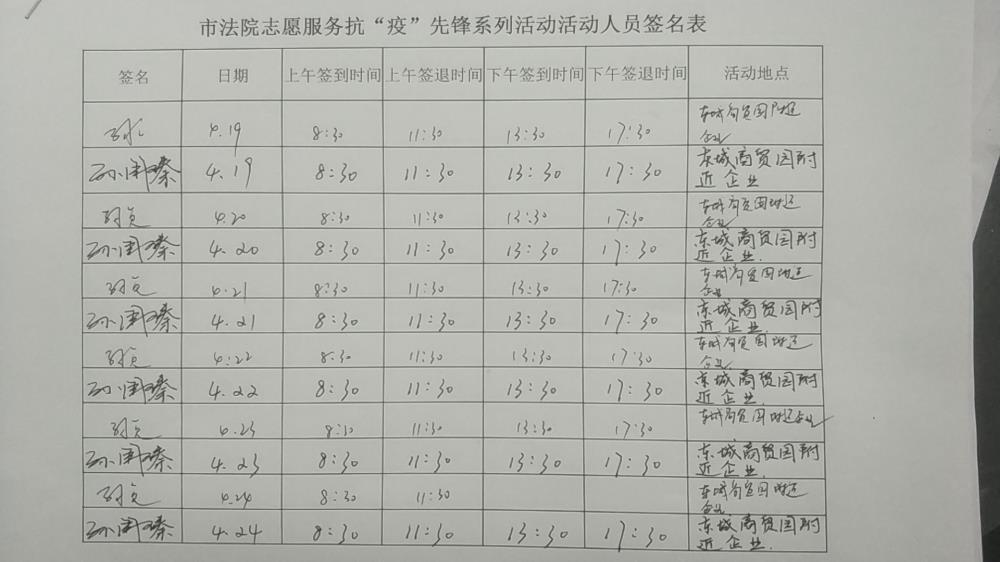 市法院志愿服务抗“疫”先锋系列活动活动人员签名表
签名 日期 上午签到时间 上午签退时间 下午签到时间 下午签退时间 活动地点
4.19 8:30 11:30 13:30 17:30 东城商贸园附近
企业
孙国臻 4.19 8:30 11:30 13:30 17:30 东城商贸园附
近企业
4.20 8:30 11:30 13:30 17:30 东城商贸园附近
企业
孙国臻 4.20 8:30 11:30 13:30 17:30 东城商贸园附
近企业.
4.21 8:30 11:30 13:30 17:30 东城商贸园附近
企业
孙国臻 4.21 8:30 11:30 13:30 17:30 东城商贸园附
近企业.
4.22 8:30 11:30 13:30 17:30 东城商贸园附近
企业.
孙国臻 4.22 8:30 11:30 13:30 17:30 东城商贸园附
近企业.
4.23 8:30 11:30 13:30 17:30 东城商贸园附近企业
孙国臻 4.23 8:30 11:30 13:30 17:30 东城商贸园附
近企业.
4.24 8:30 11:30 东城商贸园附近
企业.
孙国臻 4.24 8:30 11:30 13:30 17:30 东城商贸园附
近企业.